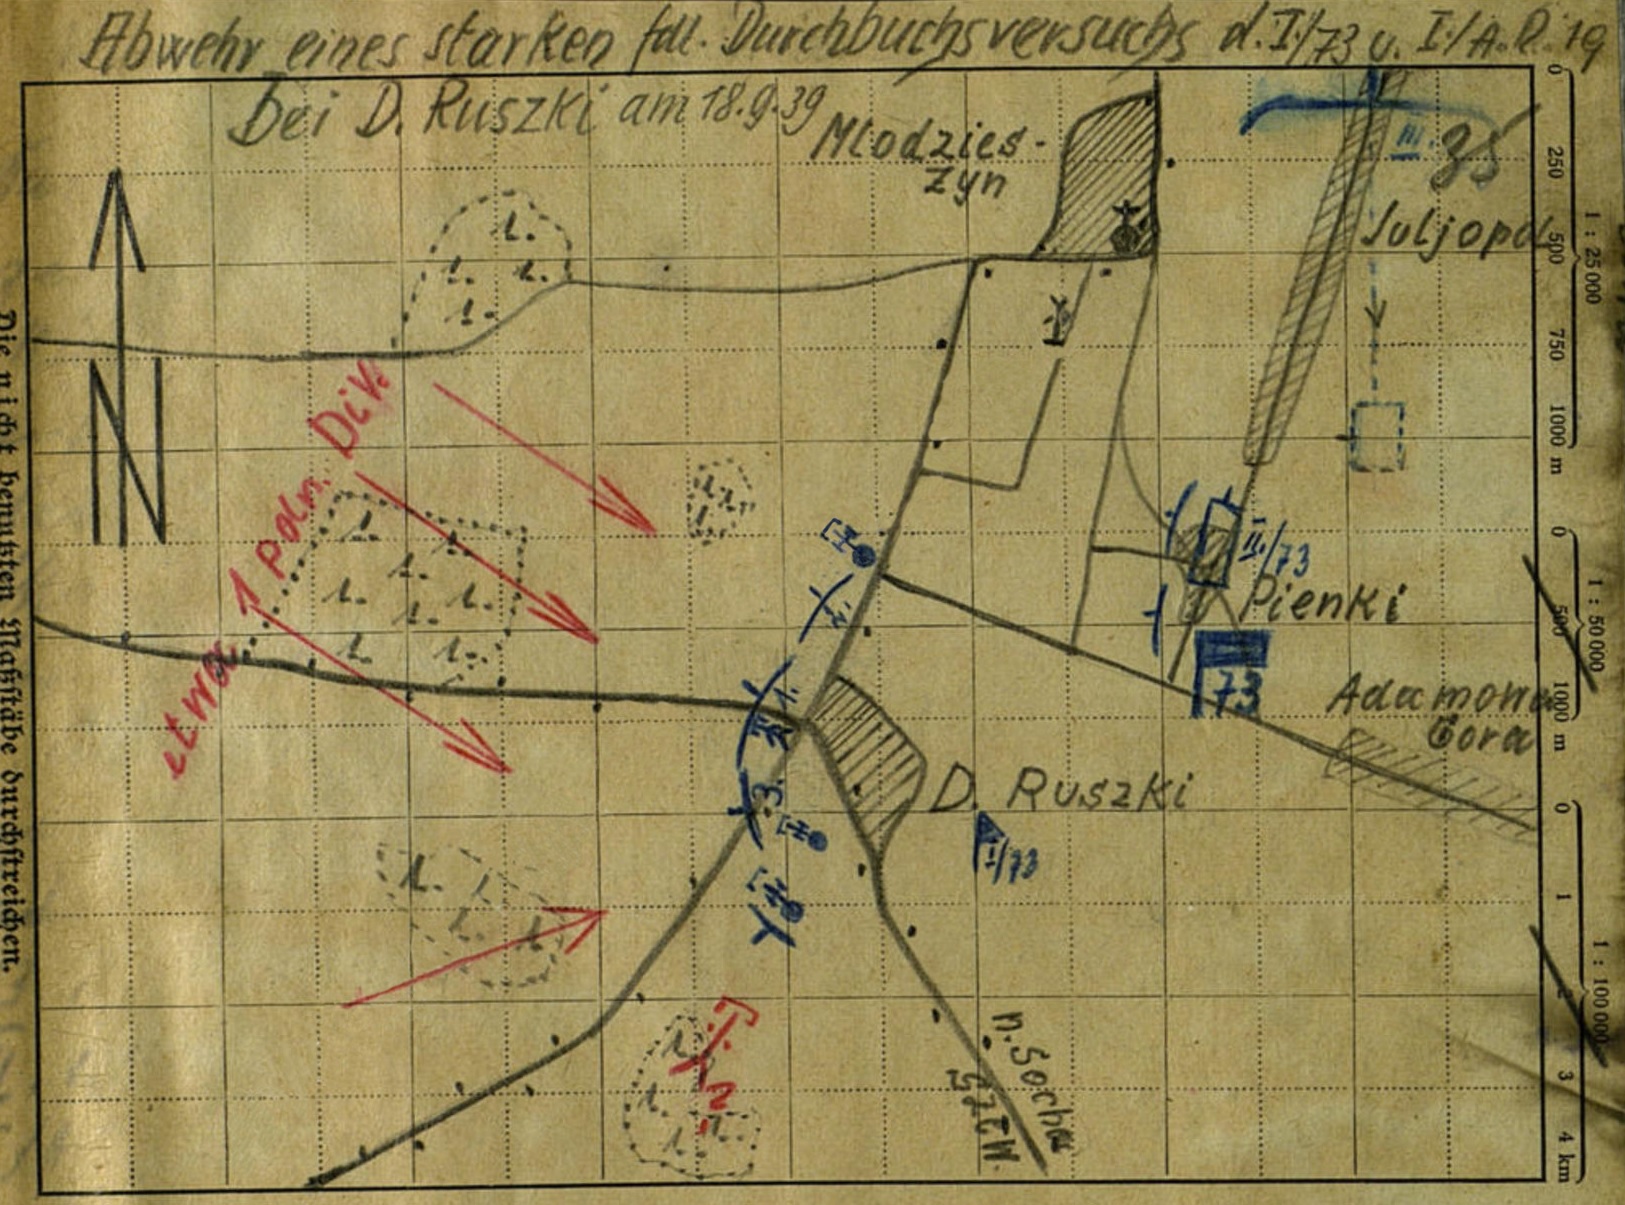 Abwehr eines starken fdl. Durchbuchsversuchs d. I./73 u. I./A.R. 19
bei D. Ruszki am 18.9.39
Mlodzies-
zyn
III.
Juljopol
etwa 1 poln. Div.
II./73
Pienki
73
Adamowa
Gora
2.
1.
3.
D. Ruszki
I/73
n. Socha
czew
N
0 250 500 750 1000 m
1 : 25 000
0 500 1000 m
1 : 50 000
0 1 2 3 4 km
1 : 100 000
Die nicht benutzten Maßstäbe durchstreichen.